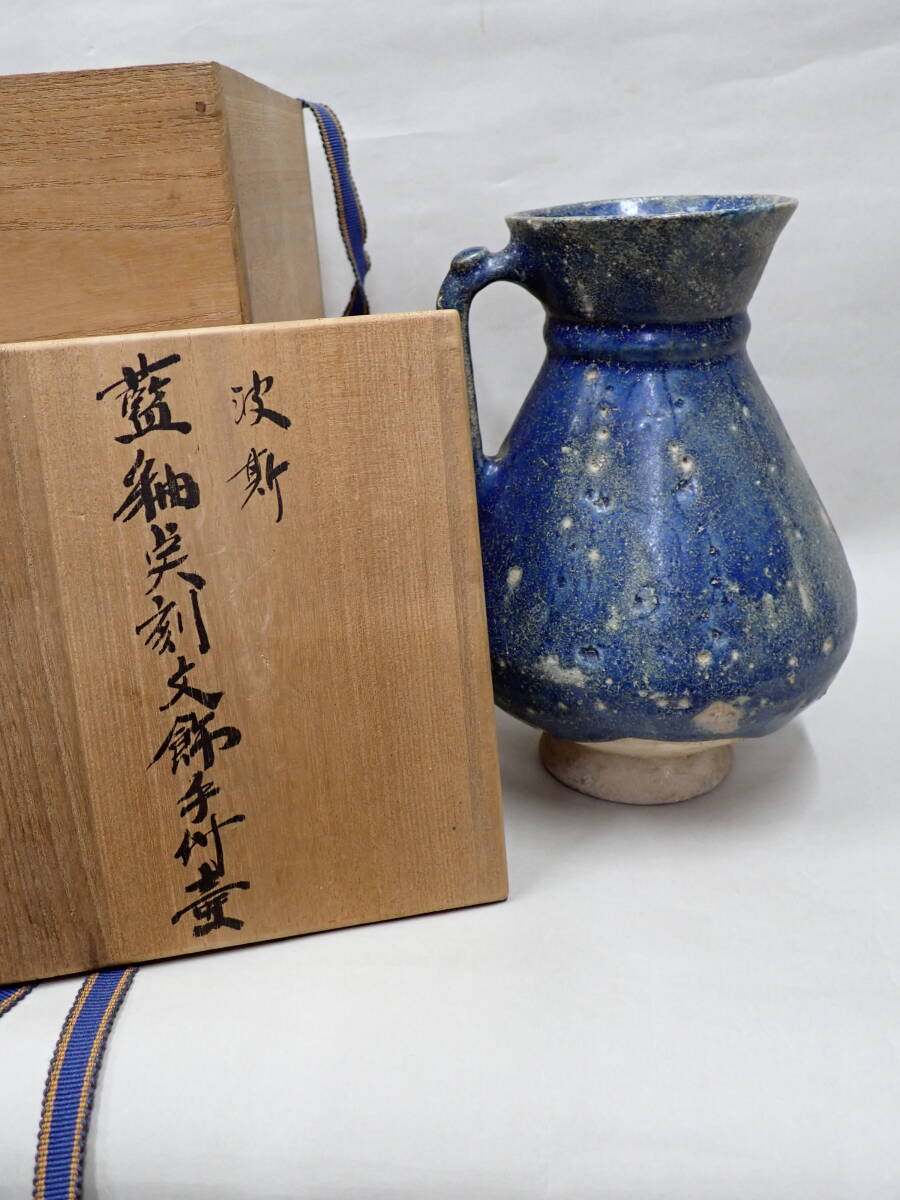 波斯
藍釉点刻文飾手付壷